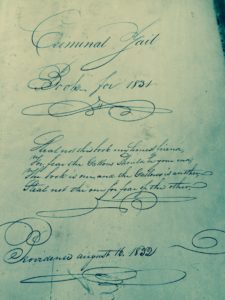 Criminal Jail
Book for 1831
Steal not this book my honest friend
For fear the Gallows Should be your end
The book is one and the Gallows is another
Steal not the one for fear of the other
Providence august 16. 1832